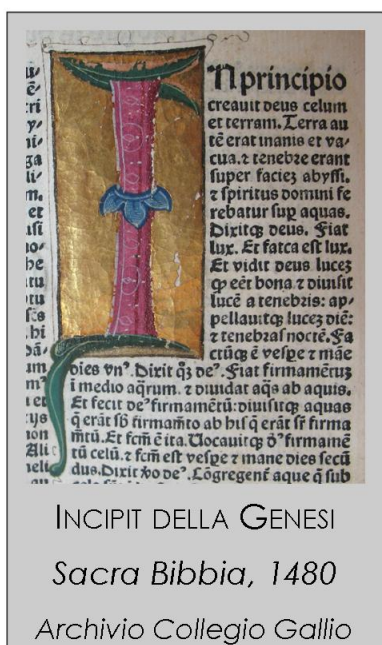 N principio
creauit deus celum
et terram. Terra au
tē erat inanis et va/
cua. ⁊ tenebre erant
super faciez abyssi.
⁊ spiritus domini fe
rebatur suꝑ aquas.
Dixitqꝫ deus. Fiat
lux. Et facta est lux.
Et vidit deus lucez
ꝙ eēt bona. ⁊ diuisit
lucē a tenebris: ap/
pellauitqꝫ lucez diē:
⁊ tenebras noctē. Fa
ctūqꝫ ē vespe ⁊ māe
dies vnꝰ. Dixit qꝫ deꝰ. Fiat firmamētuz
ī medio aqrum. ⁊ diuidat aqs ab aquis.
Et fecit deꝰ firmamētū: diuisitqꝫ aquas
q erāt sb firmamēto ab his q erāt sr firma
mētū. Et fcm ē ita. Uocauitqꝫ dꝰ firmamē
tū celū. ⁊ fcm est vespe ⁊ mane dies secū
dus. Dixit ꝟo deꝰ. Cōgregent aque q sub
INCIPIT DELLA GENESI
Sacra Bibbia, 1480
Archivio Collegio Gallio